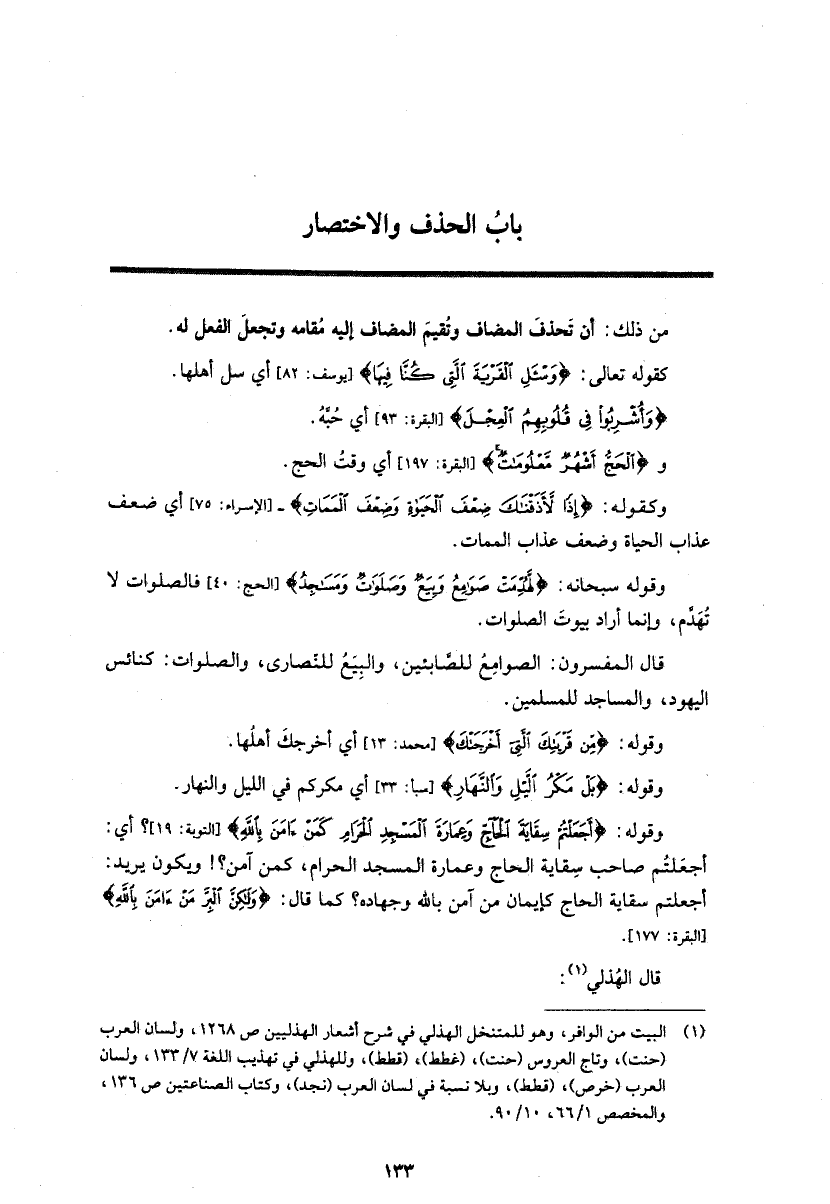 بابُ الحذف والاختصار
من ذلك: أن تَحذفَ المضاف وتُقيمَ المضاف إليه مُقامه وتجعلَ الفعل له.
كقوله تعالى: ﴿وَسْـَٔلِ ٱلْقَرْيَةَ ٱلَّتِى كُنَّا فِيهَا﴾ [يوسف: ٨٢] أي سل أهلها.
﴿وَأُشْرِبُوا۟ فِى قُلُوبِهِمُ ٱلْعِجْلَ﴾ [البقرة: ٩٣] أي حُبَّهُ.
و ﴿ٱلْحَجُّ أَشْهُرٌ مَّعْلُومَٰتٌ ۚ﴾ [البقرة: ١٩٧] أي وقتُ الحج.
وكقوله: ﴿إِذًا لَّأَذَقْنَٰكَ ضِعْفَ ٱلْحَيَوٰةِ وَضِعْفَ ٱلْمَمَاتِ﴾ ـ [الإسراء: ٧٥] أي ضعف
عذاب الحياة وضعف عذاب الممات.
وقوله سبحانه: ﴿لَّهُدِّمَتْ صَوَٰمِعُ وَبِيَعٌ وَصَلَوَٰتٌ وَمَسَٰجِدُ﴾ [الحج: ٤٠] فالصلوات لا
تُهَدَّم، وإنما أراد بيوتَ الصلوات.
قال المفسرون: الصوامِعُ للصَّابئين، والبِيَعُ للنّصارى، والصلوات: كنائس
اليهود، والمساجد للمسلمين.
وقوله: ﴿مِّن قَرْيَتِكَ ٱلَّتِىٓ أَخْرَجَتْكَ﴾ [محمد: ١٣] أي أخرجكَ أهلُها.
وقوله: ﴿بَلْ مَكْرُ ٱلَّيْلِ وَٱلنَّهَارِ﴾ [سبأ: ٣٣] أي مكركم في الليل والنهار.
وقوله: ﴿أَجَعَلْتُمْ سِقَايَةَ ٱلْحَآجِّ وَعِمَارَةَ ٱلْمَسْجِدِ ٱلْحَرَامِ كَمَنْ ءَامَنَ بِٱللَّهِ﴾ [التوبة: ١٩]؟ أي:
أجعَلتُم صاحب سِقاية الحاج وعمارة المسجد الحرام، كمن آمن؟! ويكون يريد:
أجعلتم سقاية الحاج كإيمان من آمن بالله وجهاده؟ كما قال: ﴿وَلَٰكِنَّ ٱلْبِرَّ مَنْ ءَامَنَ بِٱللَّهِ﴾
[البقرة: ١٧٧].
قال الهُذلي(١):
(١) البيت من الوافر، وهو للمتنخل الهذلي في شرح أشعار الهذليين ص ١٢٦٨، ولسان العرب
(حنت)، وتاج العروس (حنت)، (غطط)، (قطط)، وللهذلي في تهذيب اللغة ١٣٣/٧، ولسان
العرب (خرص)، (قطط)، وبلا نسبة في لسان العرب (نجد)، وكتاب الصناعتين ص ١٣٦،
والمخصص ٦٦/١، ٩٠/١٠.
١٣٣